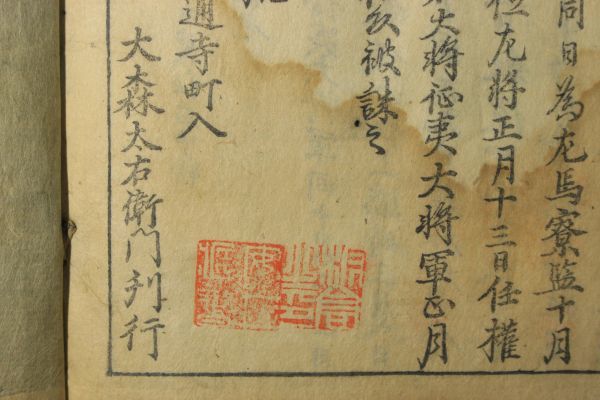 同日為左馬寮監十月
左將正月十三日任權
大將征夷大將軍正月
被誅之
通寺町入
大森太右衛門刊行